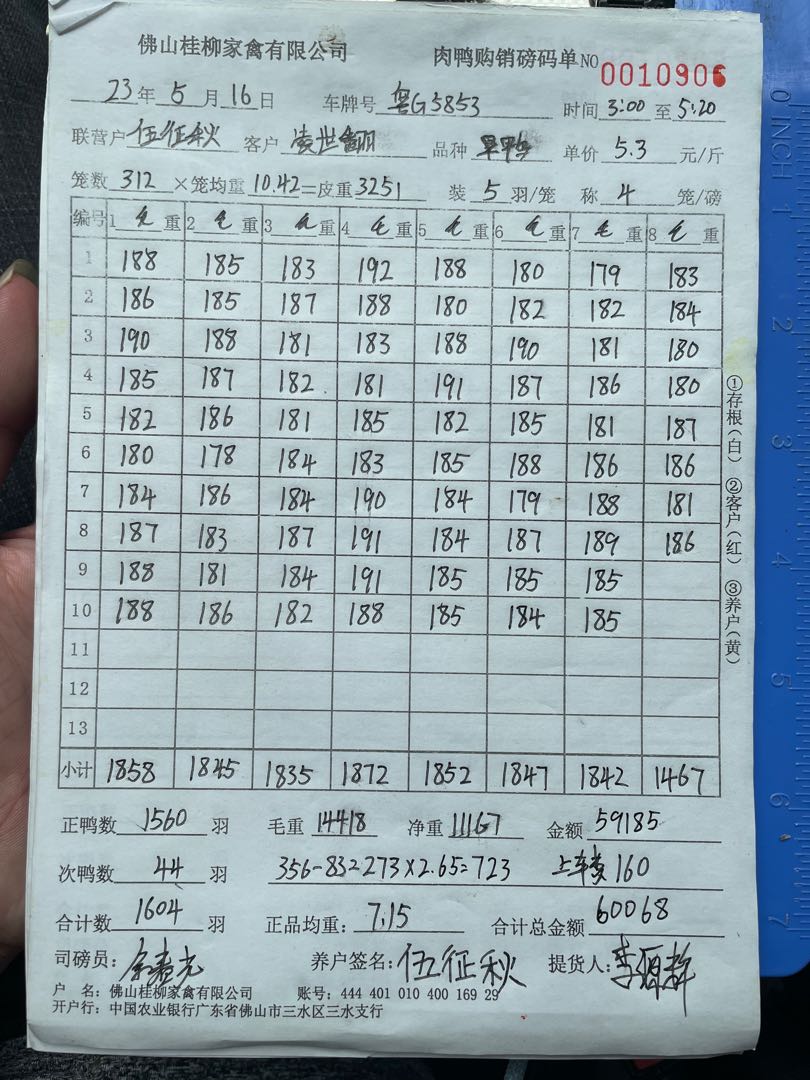 佛山桂柳家禽有限公司 肉鸭购销磅码单 NO 0010906
23年 5月 16日 车牌号 粤G5853 时间 3:00 至 5:20
联营户 伍征秋 客户 凌世翻 品种 旱鸭 单价 5.3 元/斤
笼数 312 ×笼均重 10.42=皮重 3251 装 5 羽/笼 称 4 笼/磅
编号 1 毛 重 2 毛 重 3 毛 重 4 毛 重 5 毛 重 6 毛 重 7 毛 重 8 毛 重
1 188 185 183 192 188 180 179 183
2 186 185 187 188 180 182 182 184
3 190 188 181 183 188 190 181 180
4 185 187 182 181 191 187 186 180
5 182 186 181 185 182 185 181 187
6 180 178 184 183 185 188 186 186
7 184 186 184 190 184 179 188 181
8 187 183 187 191 184 187 189 186
9 188 181 184 191 185 185 185
10 188 186 182 188 185 184 185
11
12
13
小计 1858 1845 1835 1872 1852 1847 1842 1467
正鸭数 1560 羽 毛重 14418 净重 11167 金额 59185
次鸭数 44 羽 356-83=273×2.65=723 上车费160
合计数 1604 羽 正品均重: 7.15 合计总金额 60068
司磅员: 养户签名: 伍征秋 提货人:
户 名: 佛山桂柳家禽有限公司 账号: 444 401 010 400 169 29
开户行: 中国农业银行广东省佛山市三水区三水支行
①存根(白) ②客户(红) ③养户(黄)
0 INCH 1 2 3 4 5 6 7